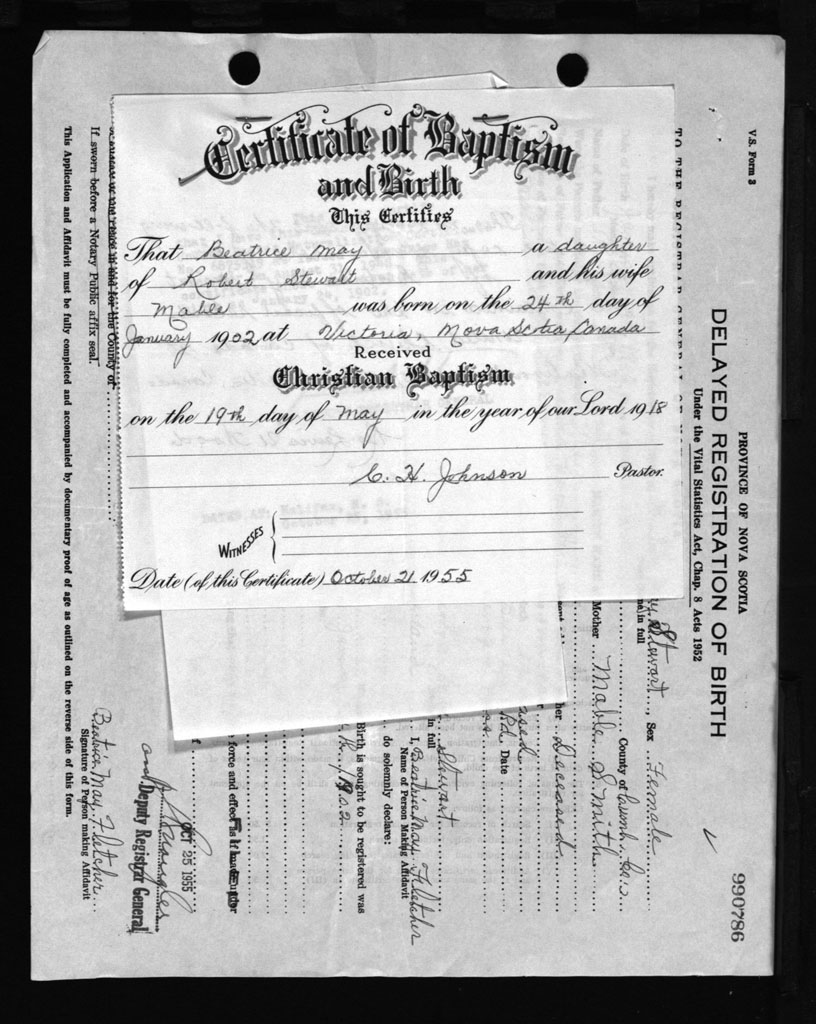 Certificate of Baptism
and Birth
This Certifies
That Beatrice May a daughter
of Robert Stewart and his wife
Mable was born on the 24th day of
January 1902 at Victoria, Nova Scotia, Canada
Received
Christian Baptism
on the 19th day of May in the year of our Lord 1918
C. H. Johnson Pastor.
WITNESSES
Date (of this Certificate) October 21 1955
V.S. Form 3
990786
PROVINCE OF NOVA SCOTIA
DELAYED REGISTRATION OF BIRTH
Under the Vital Statistics Act, Chap. 8 Acts 1952
TO THE REGISTRAR GENERAL OF
Stewart Sex Female
in full
County of Cumb. Co.
Mother Mable Smith
Deceased
Date
Stewart
in full
I, Beatrice May Fletcher
Name of Person Making Affidavit
do solemnly declare:
Birth is sought to be registered was
1902
force and effect as if made under
OCT 25 1955
Deputy Registrar General
and for the County of
If sworn before a Notary Public affix seal.
Beatrice May Fletcher
Signature of Person making Affidavit
This Application and Affidavit must be fully completed and accompanied by documentary proof of age as outlined on the reverse side of this form.